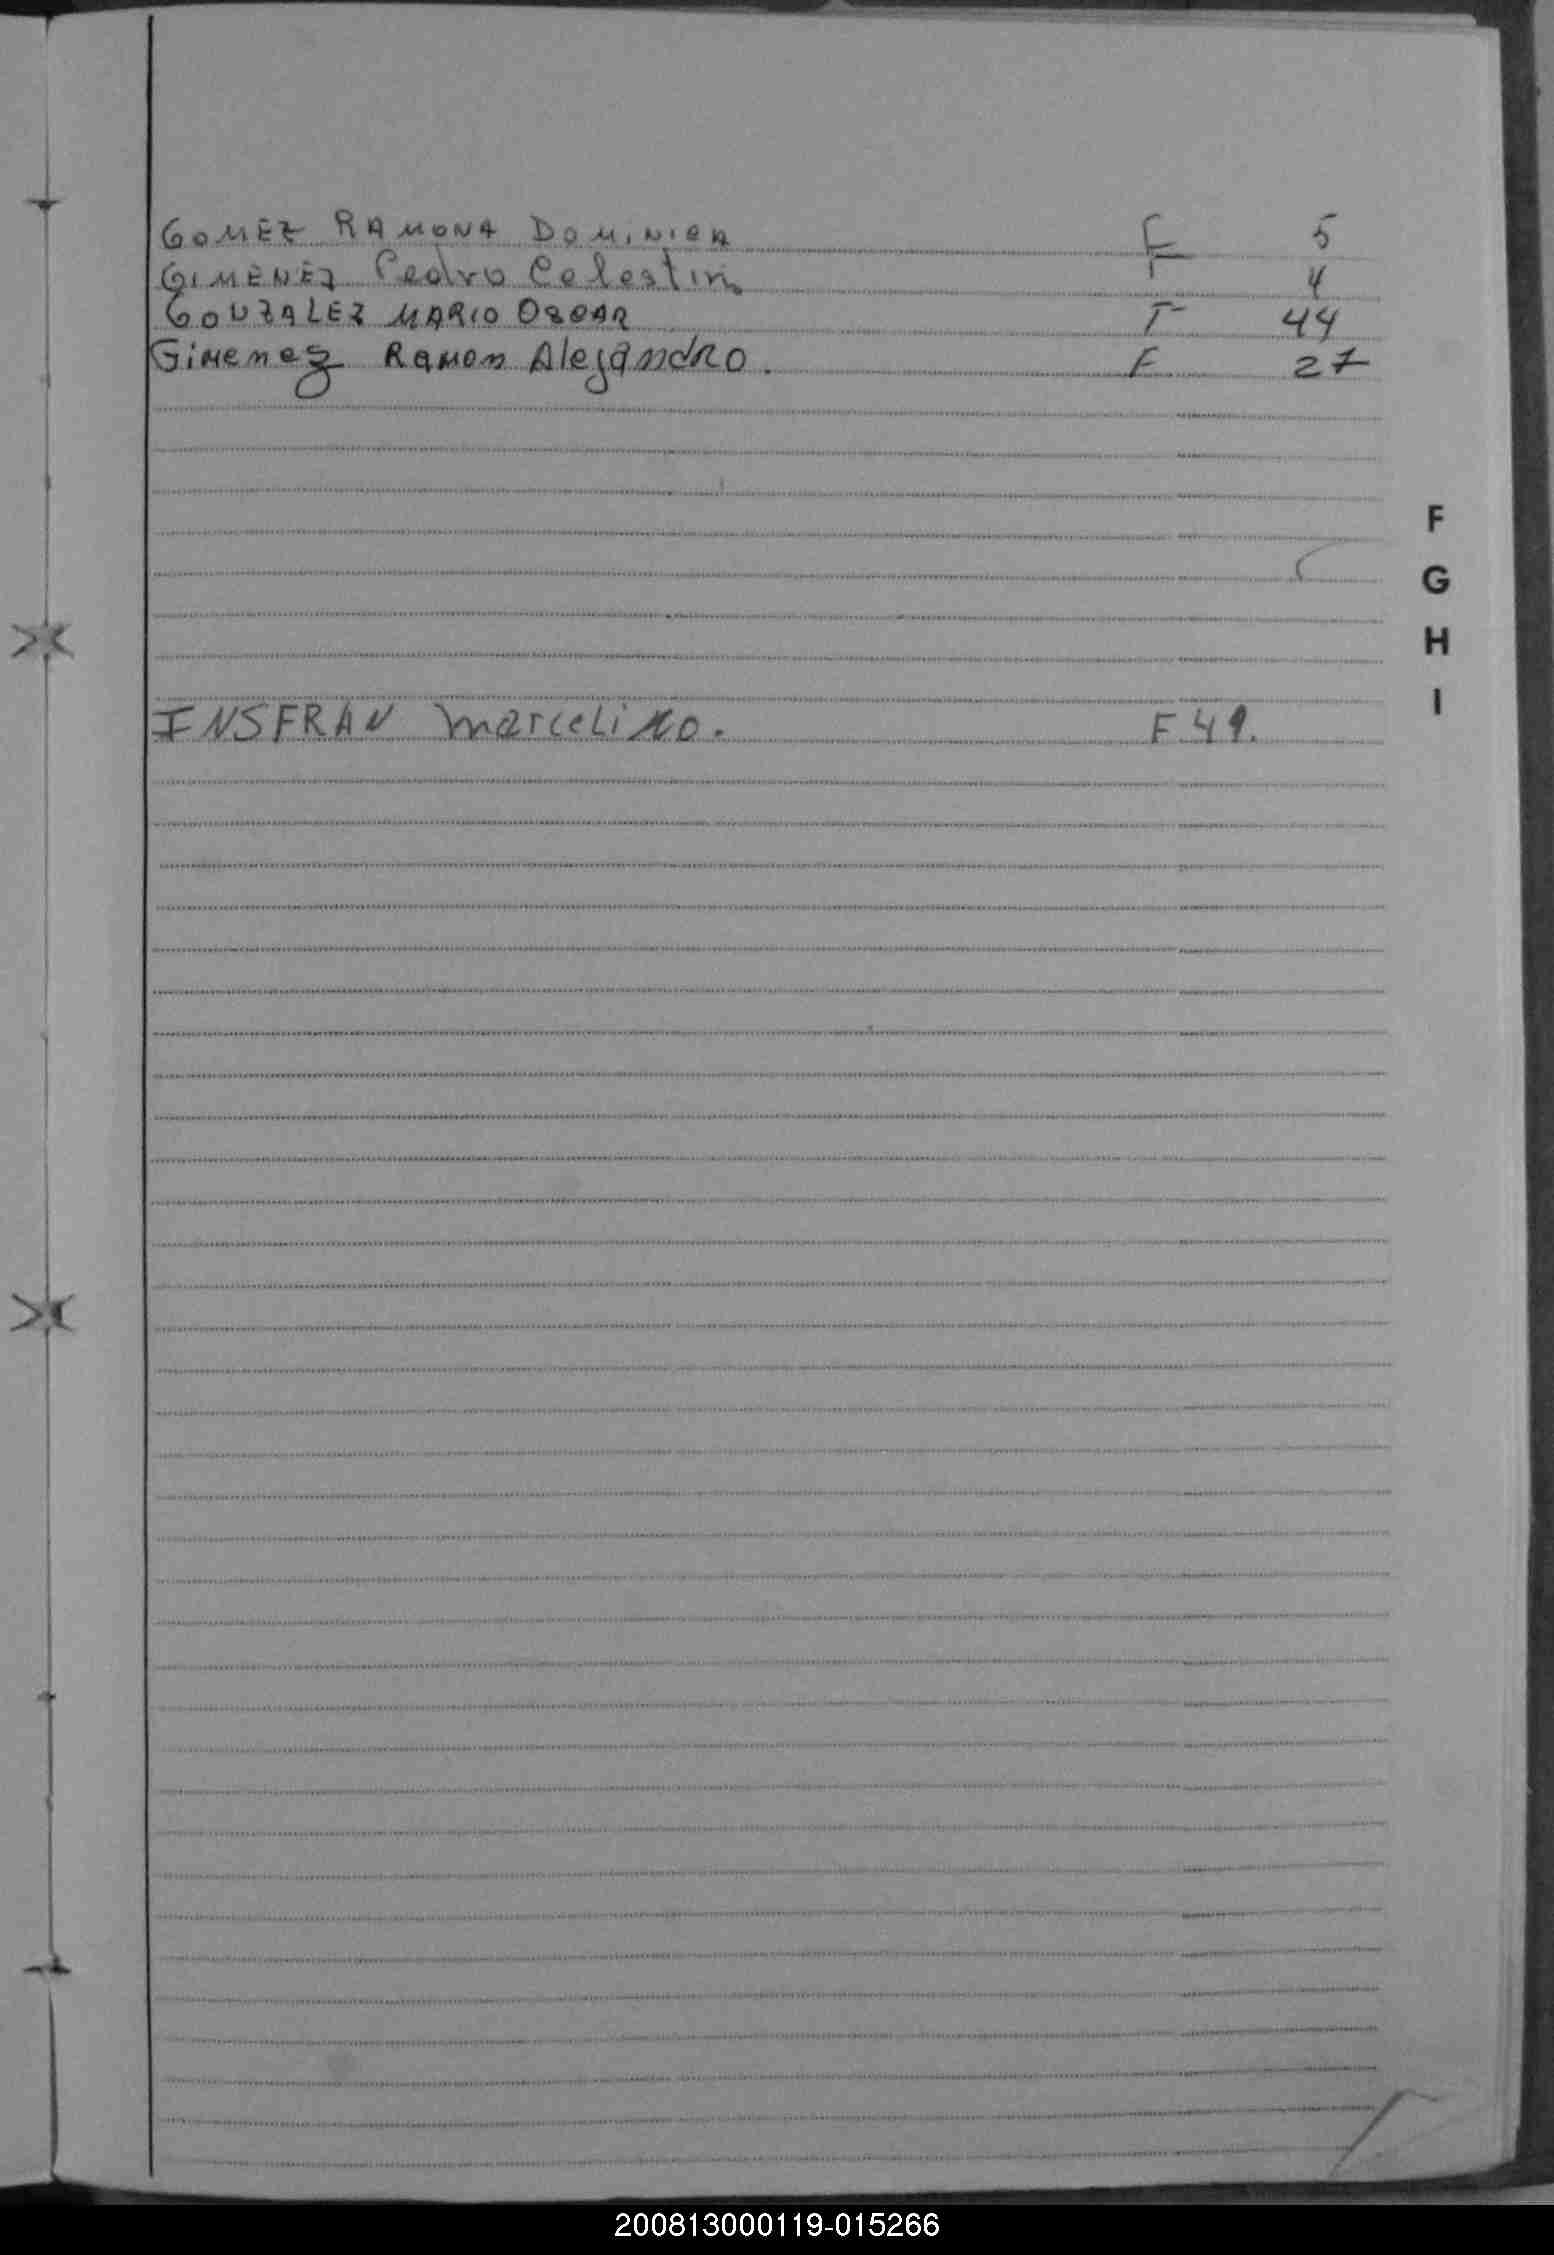 GOMEZ RAMONA DOMINICA F 5
GIMENEZ Pedro Celestino F 4
GONZALEZ MARIO OSCAR F 44
Gimenez Ramon Alejandro. F 27
F
G
H
I
INSFRAN Marcelino. F 49.
200813000119-015266